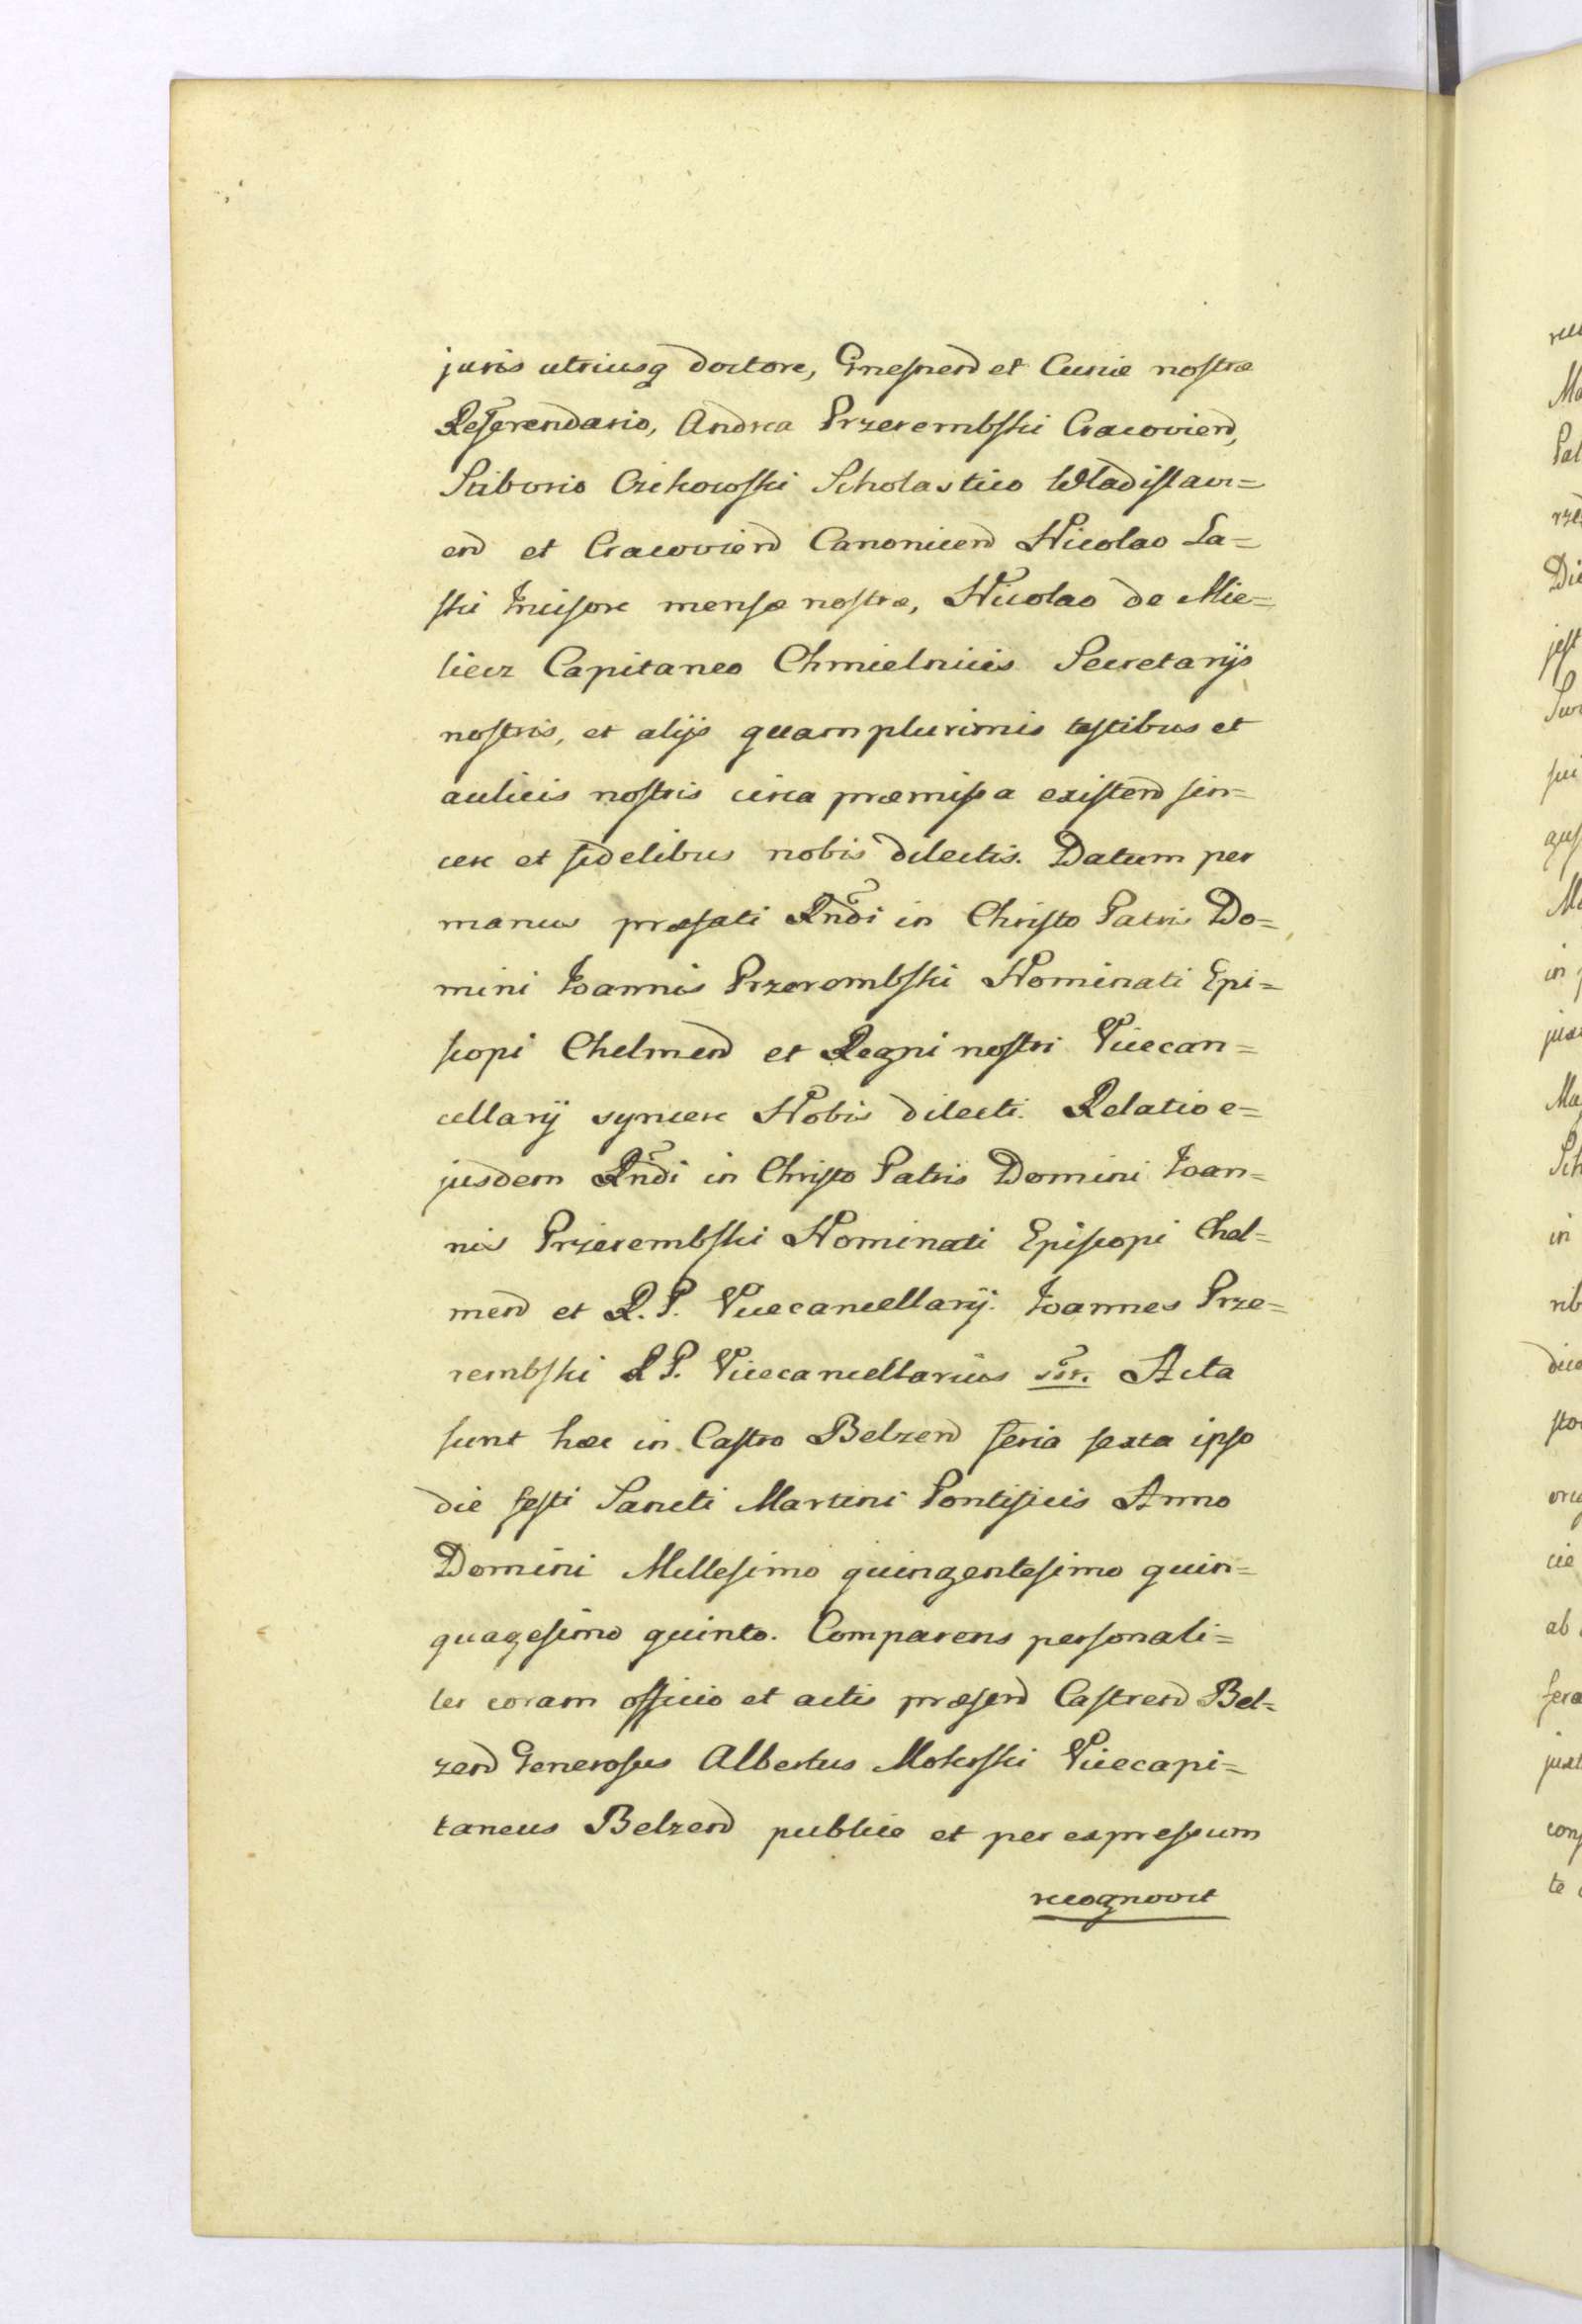 juris utriusq doctore, Gnesnen et Curiæ nostræ
Referendario, Andrea Przerembski Cracovien,
Stiborio Czikowski Scholastico Wladislavi=
en et Cracovien Canonicen Nicolao La=
ski Incisore mensæ nostræ, Nicolao de Mie=
liecz Capitaneo Chmielnicis Secretarijs
nostris, et alijs quam plurimis testibus et
aulicis nostris circa præmissa existen sin=
cere et fidelibus nobis dilectis. Datum per
manus præfati Rndi in Christo Patris Do=
mini Joannis Przerembski Nominati Epi=
scopi Chelmen et Regni nostri Vicecan=
cellarij syncere Nobis dilecti. Relatio e=
jusdem Rndi in Christo Patris Domini Joan=
nis Przerembski Nominati Episcopi Chel=
men et R. P. Vicecancellarij. Joannes Prze=
rembski R P. Vicecancellarius sst. Acta
sunt hæc in Castro Belzen feria sexta ipso
die festi Sancti Martini Pontificis Anno
Domini Millesimo quingentesimo quin=
quagesimo quinto. Comparens personali=
ter coram officio et actis præsen Castren Bel=
zen Generosus Albertus Mokrski Vicecapi=
taneus Belzen publice et per expressum
recognovit